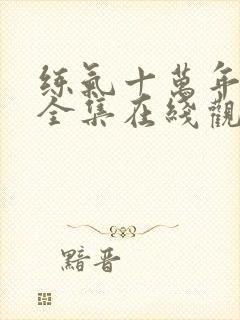 练氣十萬年
全集在綫觀
黯晋